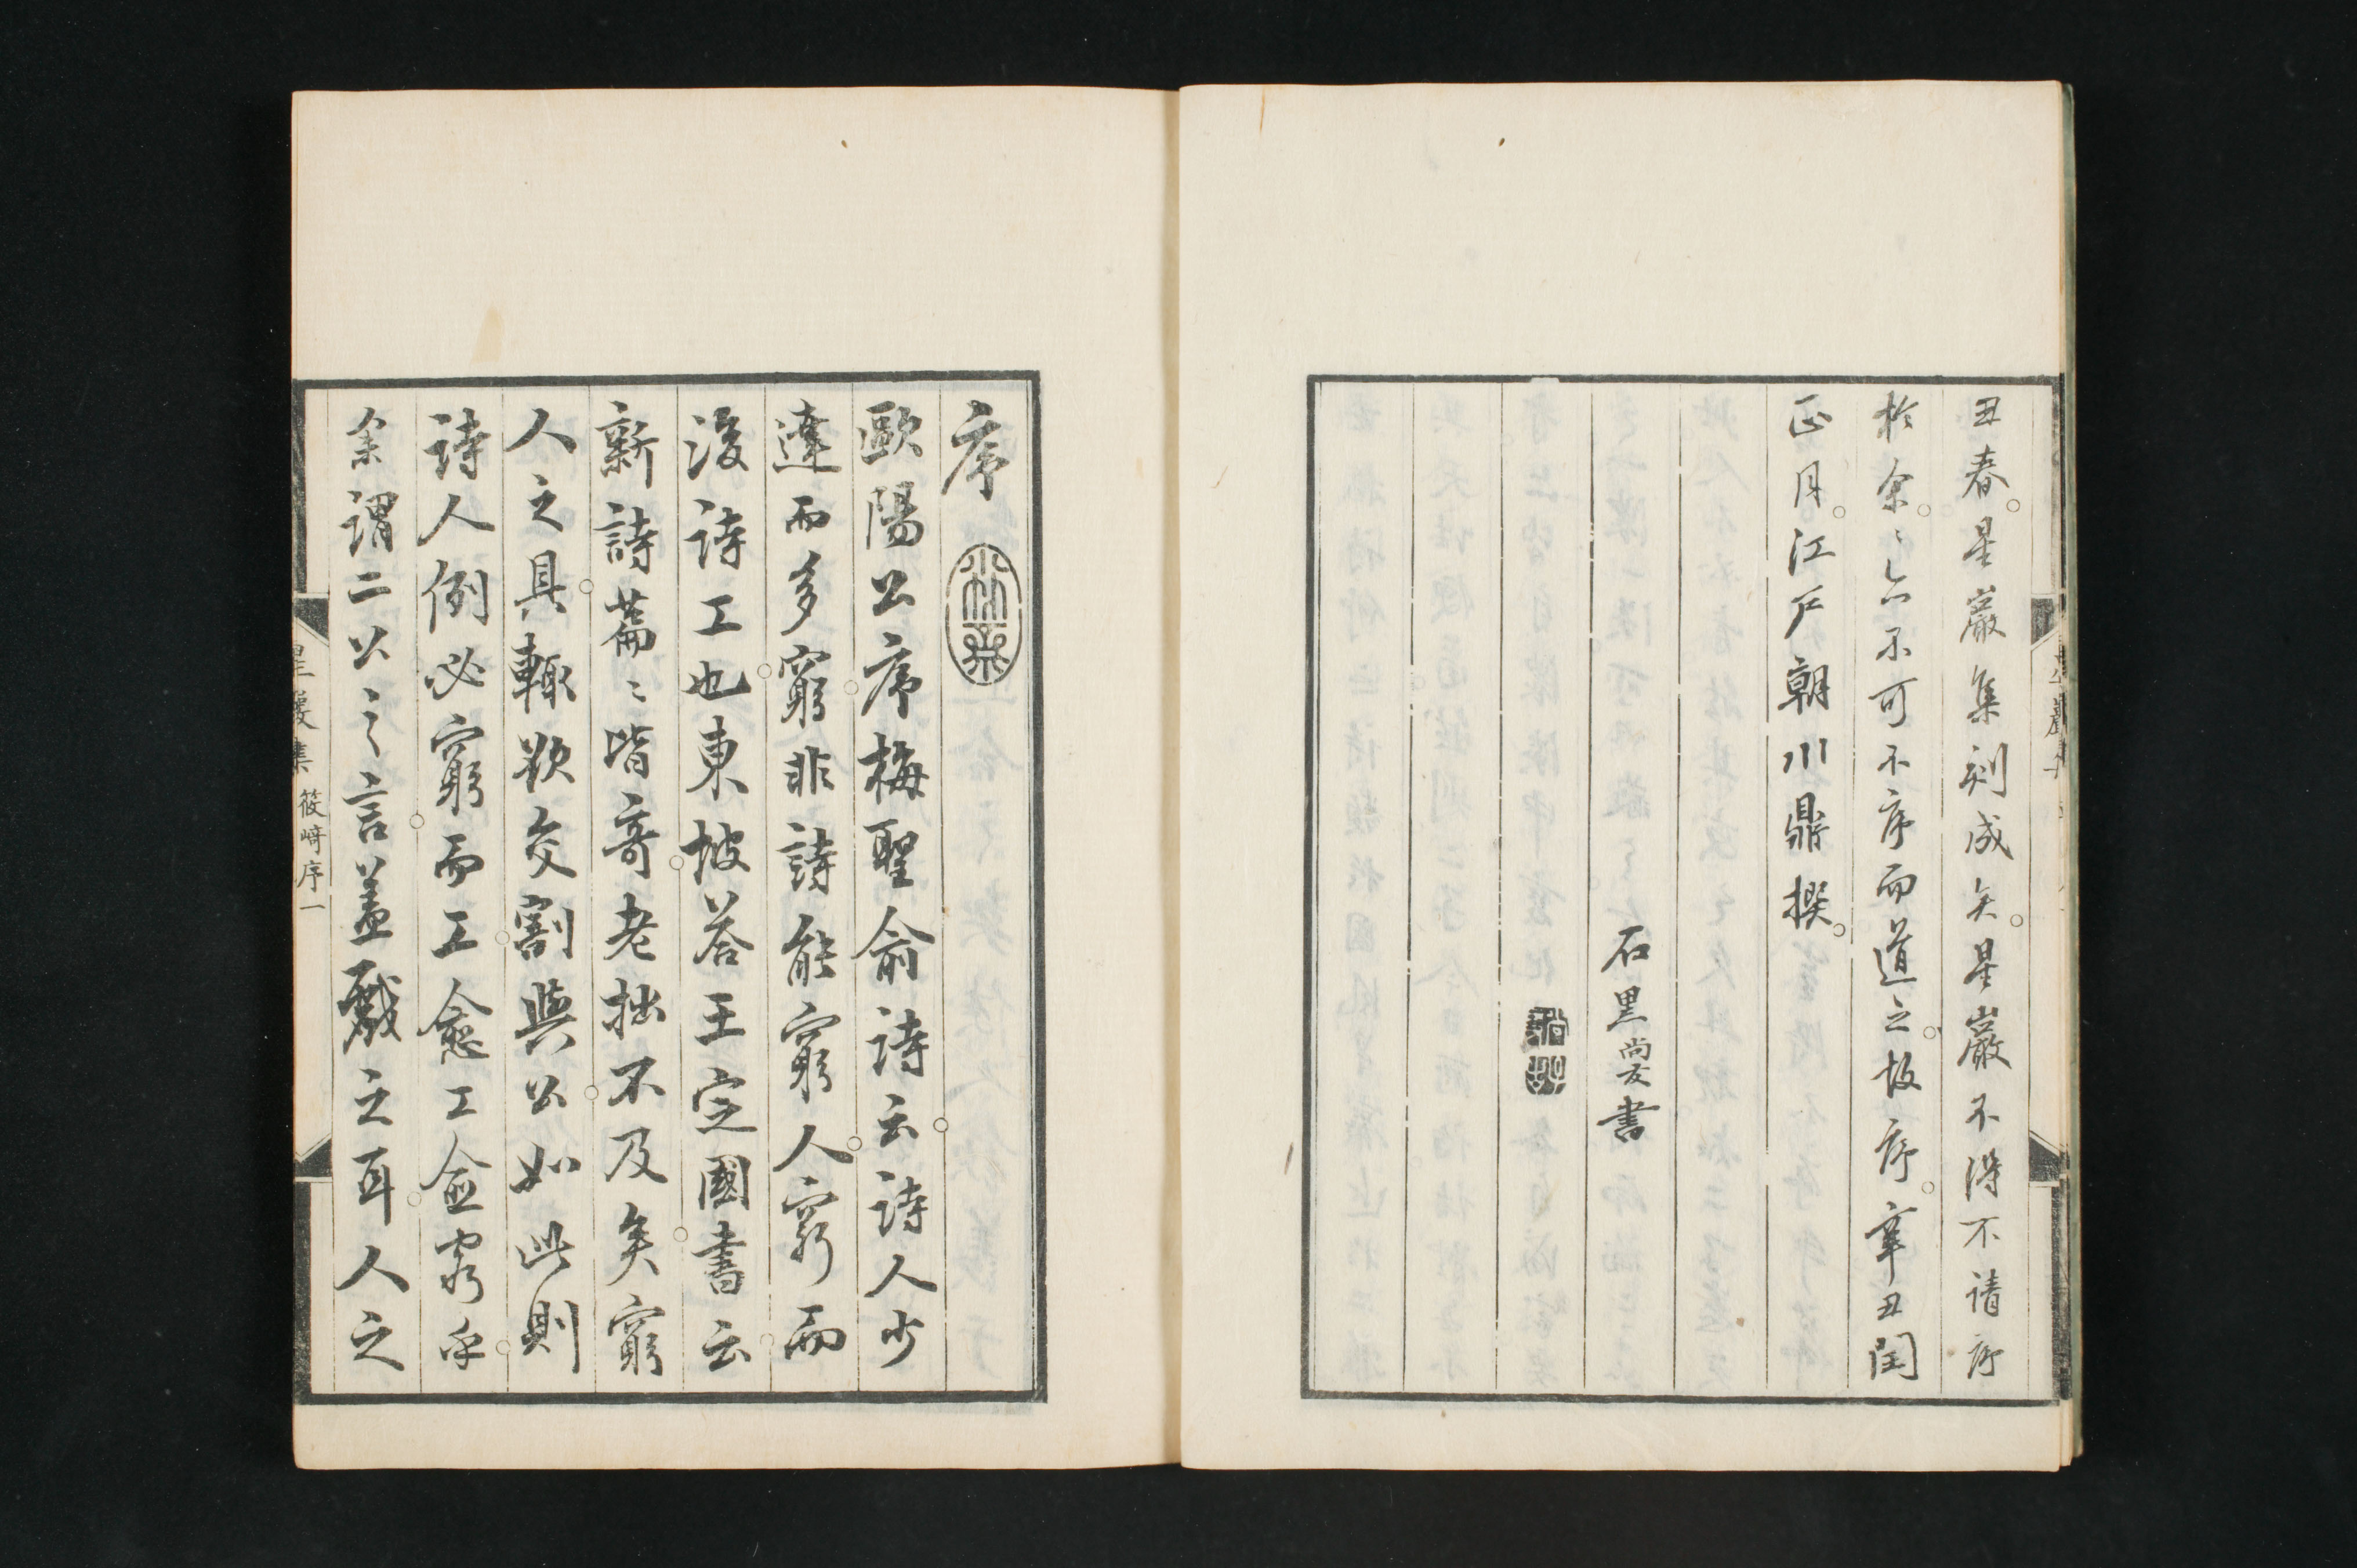 丑春星巖集刻成矣星巖不得不請序
於余〻亦不可不序而道之故序辛丑閏
正月江戸朝川鼎撰
石黒尚友書
序
歐陽公序梅聖俞詩云詩人少
達而多窮非詩能窮人窮而
後詩工也東坡答王定國書云
新詩篇〻皆奇老拙不及矣窮
人之具輙欲交割與公如此則
詩人例必窮而工愈工愈窮乎
余謂二公之言蓋戲之耳人之
星巖集 筱崎序一